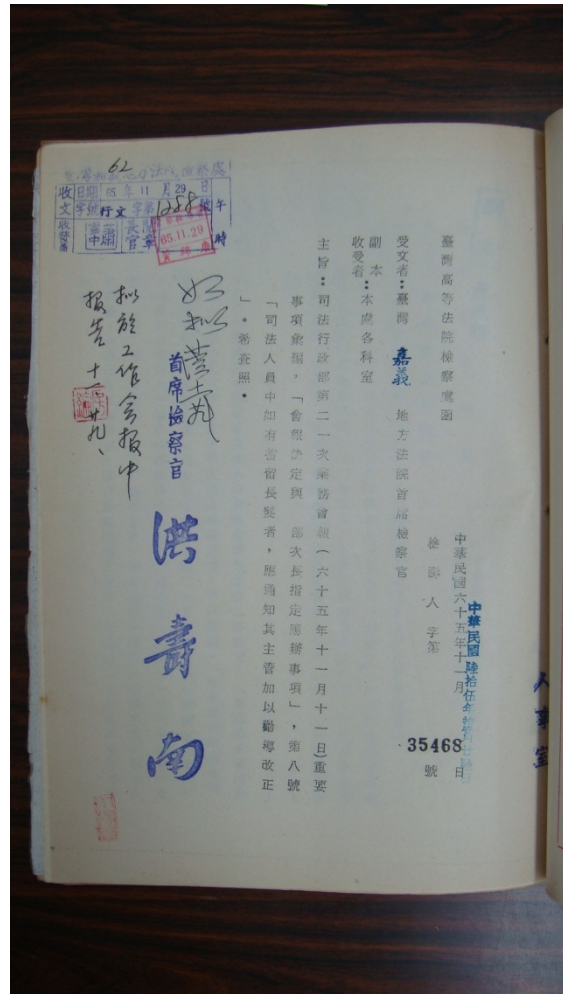 臺灣高等法院檢察處函
中華民國六十五年十一月 日
中華民國陸拾伍年拾壹月
檢 人 字第 35468 號
受文者：臺灣 嘉義 地方法院首席檢察官
副本
收受者：本處各科室
主旨：司法行政部第二一次業務會報（六十五年十一月十一日）重要
事項彙編，「會報決定與 部次長指定應辦事項」，第八號
「司法人員中如有蓄留長髮者，應通知其主管加以勸導改正
」。希查照。
首席檢察官 洪壽南
如擬
擬於工作會報中
報告 十一、廿九、
收文
日期 65 年 11 月 29 日 午 時
字號 行文字第 1288 號
收發章
65.11.29
62
人事室